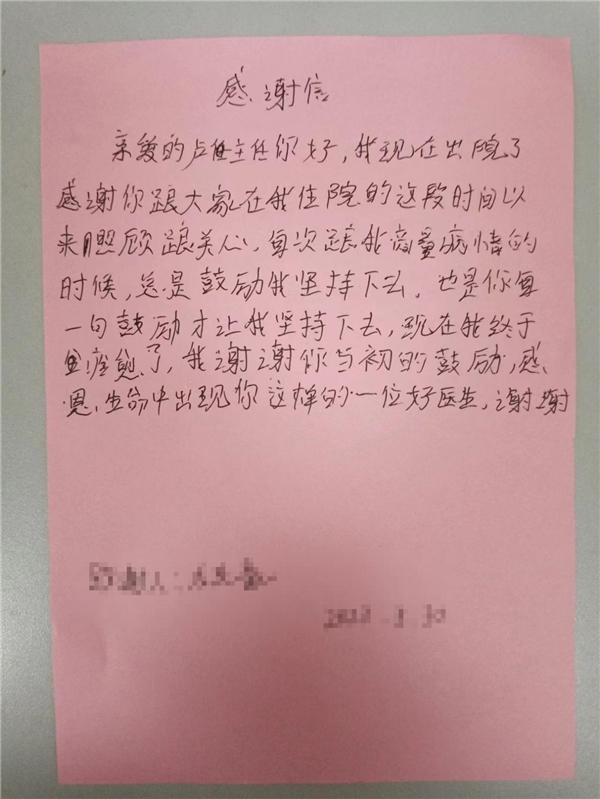 感谢信
亲爱的卢主任你好,我现在出院了
感谢你跟大家在我住院的这段时间以
来照顾跟关心、每次跟我商量病情的
时候,总是鼓励我坚持下去,也是你每
一句鼓励才让我坚持下去,现在我终于
痊愈了,我谢谢你当初的鼓励,感
恩、生命中出现你这样的一位好医生,谢谢